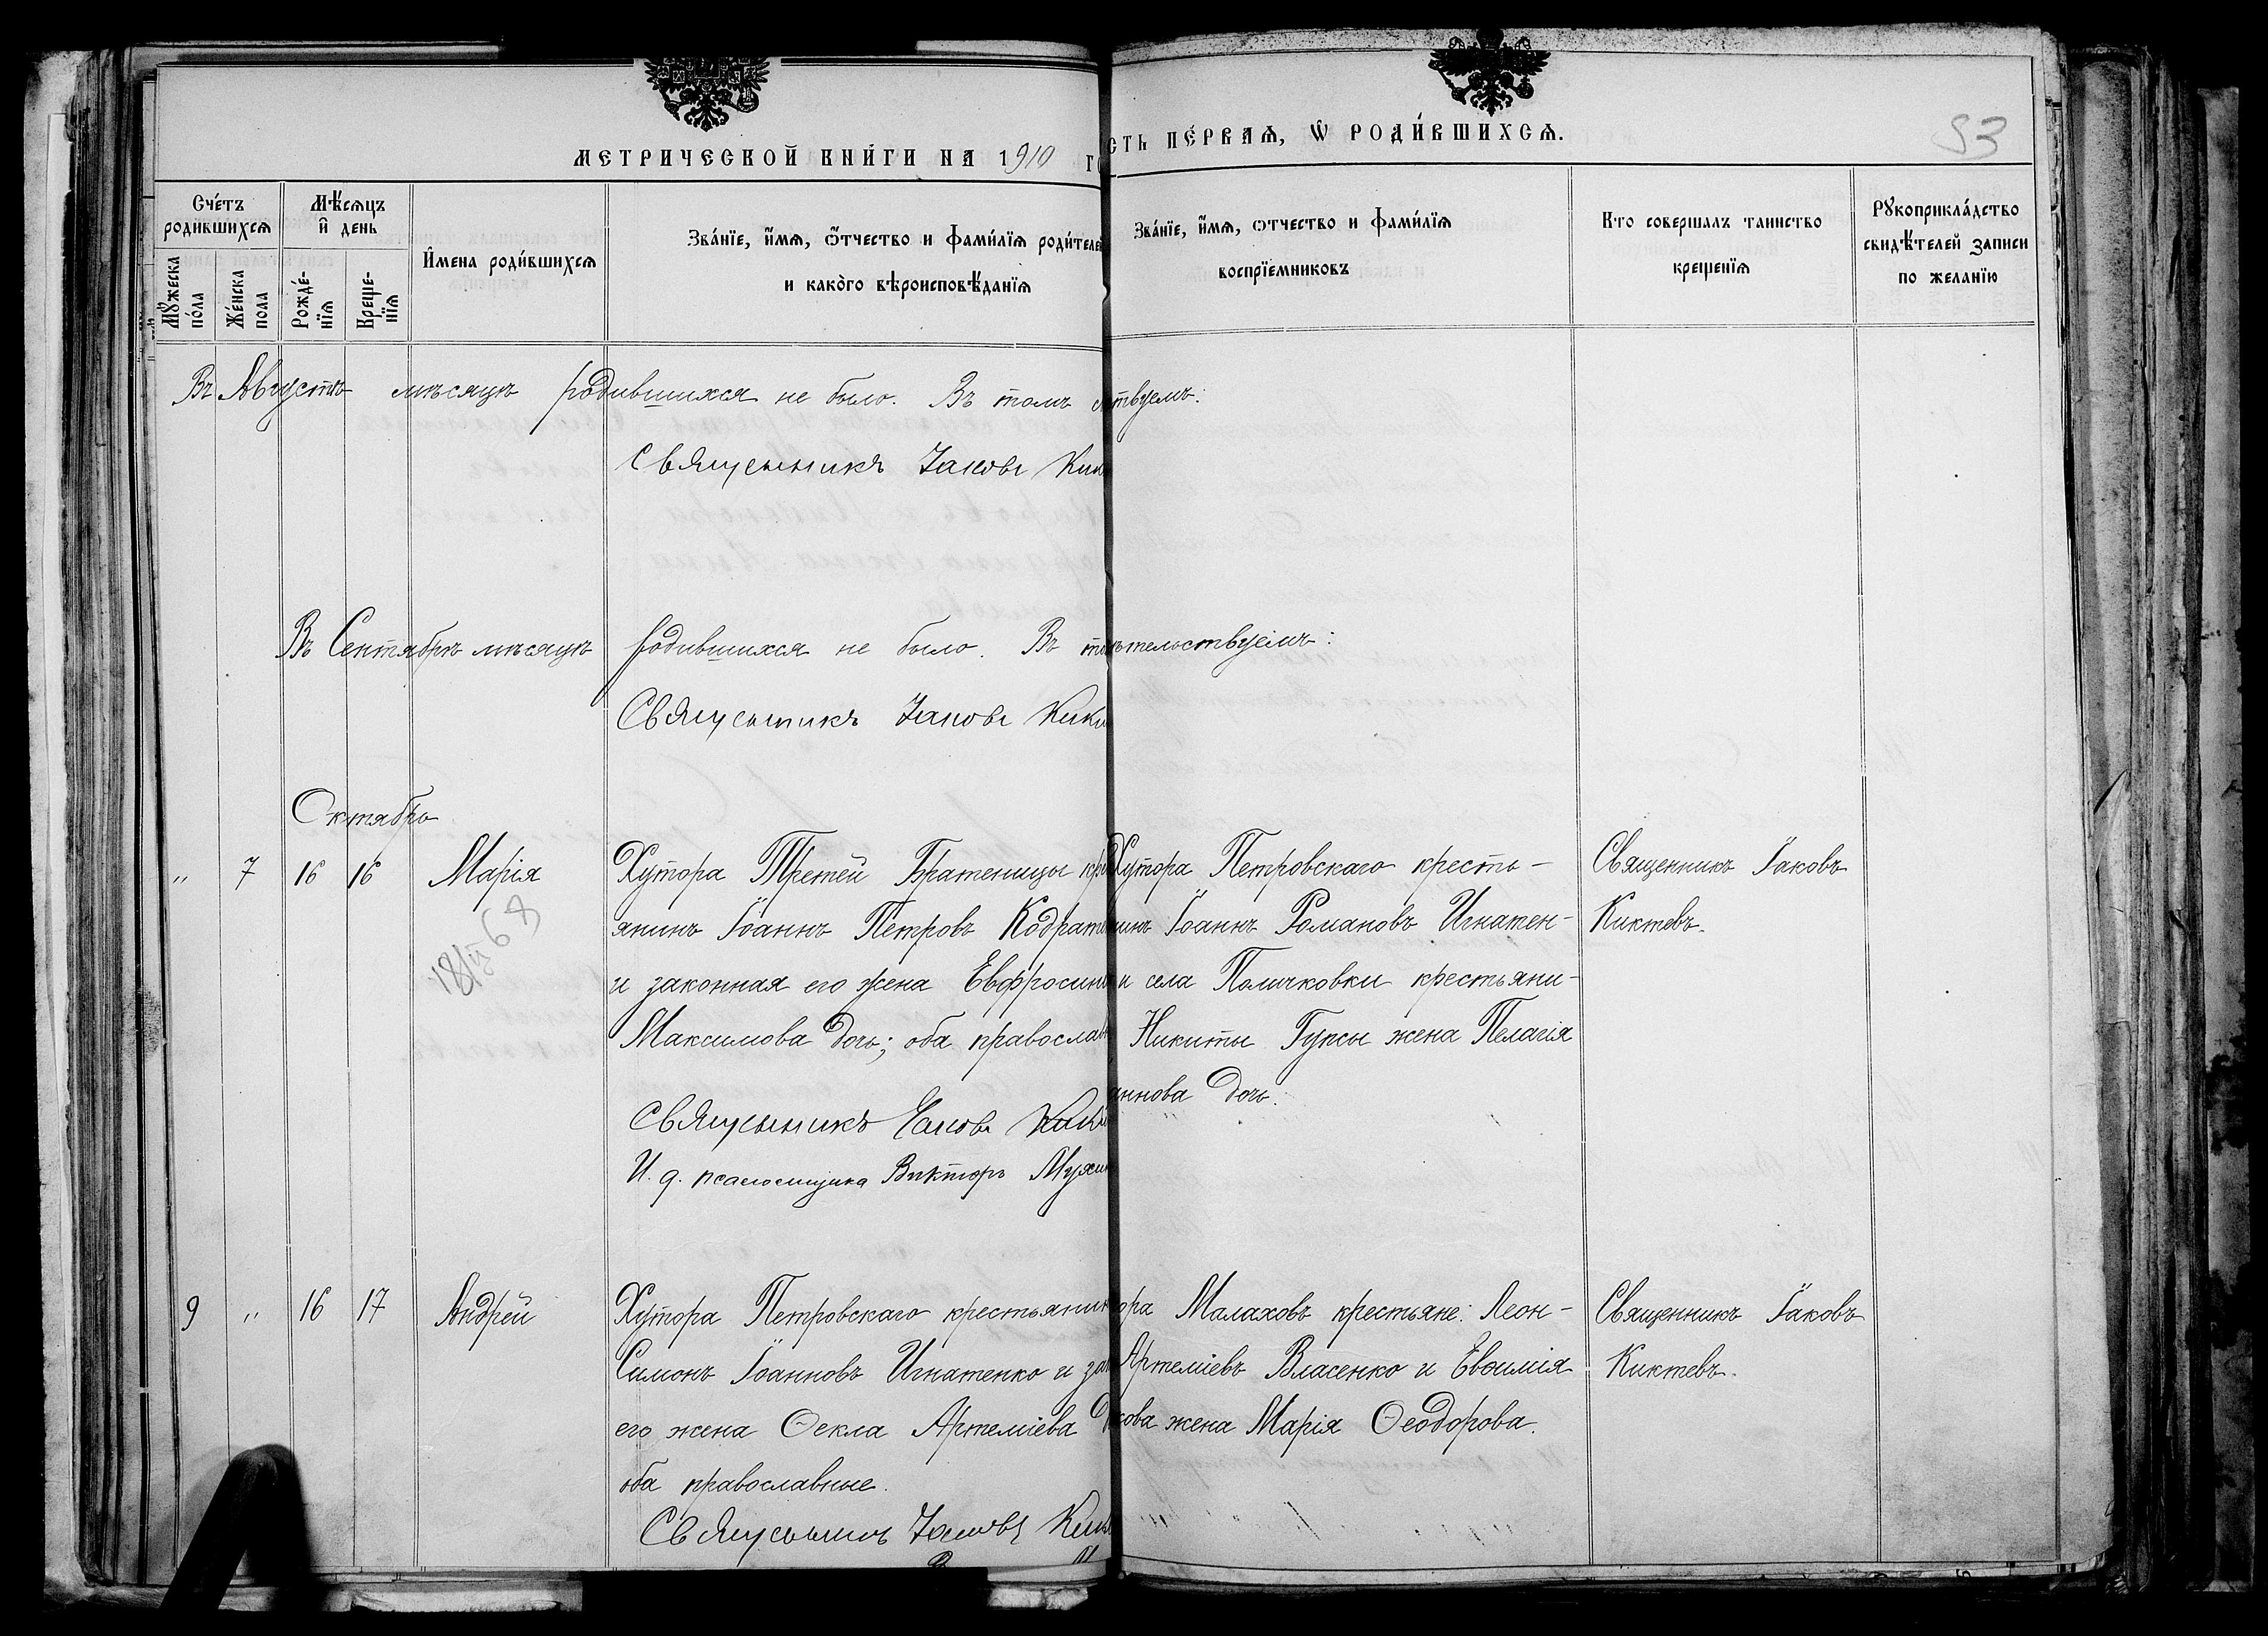 МЕТРИЧЕСКОЙ КНИ́ГИ НА 1910
СТЬ ПЕ́РВАѦ, Ѡ҆ РОДИ́ВШИХСѦ.
53
Сче́тъ родившихсѧ
Мѣ́сѧцъ и҆ день
Мꙋ́жеска по́ла
Же́нска пола
Рожде́-нїѧ
Креще-нїѧ
И҆мена роди́вшихсѧ
Зва́нїе, и҆́мѧ, ѻ҆́тчество и фами́лїѧ роди́теле
и како́го вѣроисповѣ́данїѧ
Зва́нїе, и҆́мѧ, ѻтчество и фами́лїѧ
воспрїемниковъ
Кто совершалъ таинство
крещенїѧ
Рꙋкоприкла́дство
свидѣ́телей записи
по желанїю
Въ Августѣ мѣсяцѣ родившихся не было. Въ томъ
ствуемъ:
Священникъ Іаковъ
Въ Сентябрѣ мѣсяцѣ родившихся не было. Въ
тельствуемъ:
Священникъ Іаковъ
Октябрь
" 7 16 16 Марія
Хутора Третей Братеницы
янинъ Іоаннъ Петровъ Кодрат
и законная его жена Евфросин
Максимова дочь; оба православ
Священникъ Іаковъ
И. д. псаломщика Викторъ
Хутора Петровскаго кресть-
нинъ Іоаннъ Романовъ Игнатен-
и села Поличковки крестьяни-
Никиты Гупсы жена Пелагія
аннова дочь.
Священникъ Іаковъ
Киктевъ.
9 " 16 17 Андрей
Хутора Петровскаго крестьянин
Симонъ Іоанновъ Игнатенко и за
его жена Ѳекла Артеміева
оба православные.
Священникъ Іаковъ
ора Малаховъ крестьяне: Леон-
Артеміевъ Власенко и Евѳимія
кова жена Марія Ѳеодорова.
Священникъ Іаковъ
Киктевъ.